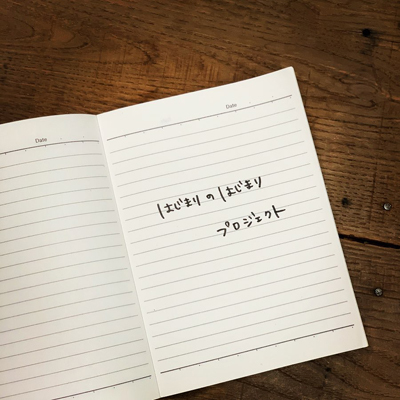 Date
Date
はじまりのはじまり
プロジェクト